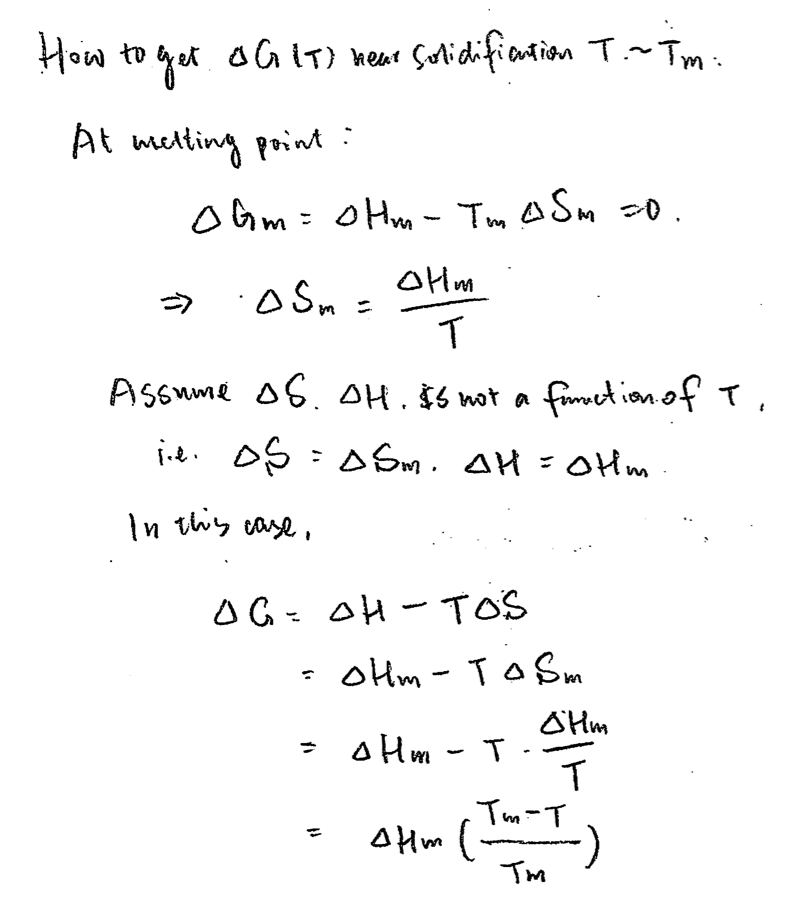 How to get ΔG(T) near solidification T ~ Tm.
At melting point :
ΔGm = ΔHm - Tm ΔSm = 0.
⇒ ΔSm = ΔHm / T
Assume ΔS. ΔH. is not a function of T,
i.e. ΔS = ΔSm. ΔH = ΔHm.
In this case,
ΔG = ΔH - TΔS
= ΔHm - TΔSm
= ΔHm - T · ΔHm / T
= ΔHm ( Tm - T / Tm )